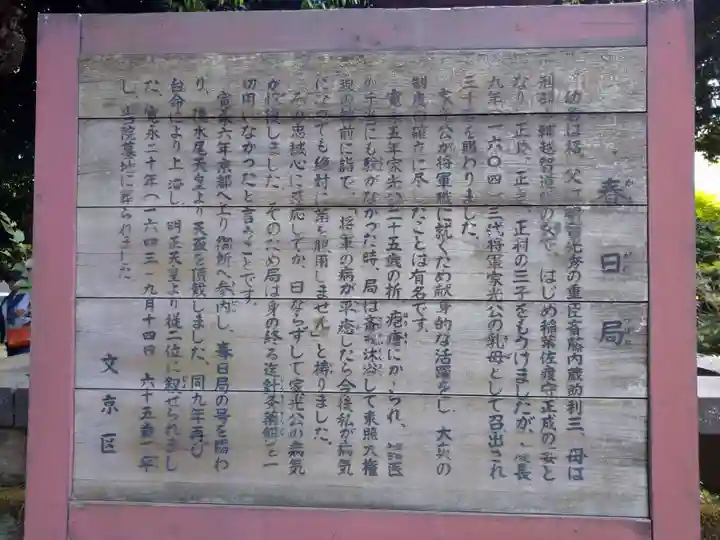 春日局
かすがのつぼね
幼名は福、父は明智光秀の重臣斎藤内蔵助利三、母は
刑部 輔越智通 の女で、はじめ稲葉佐渡守正成の妻と
なり、正勝、正 、正利の三子をもうけましたが、慶長
九年(一六〇四)三代将軍家光公の乳母として召出され
三千石を賜わりました。
家光公が将軍職に就くため献身的な活躍をし、大奥の
制度の確立に尽したことは有名です。
寛永五年家光公二十五歳の折、疱瘡にかゝられ、諸医
が手当にも験がなかった時、局は斎戒沐浴して東照大権
現の神前に詣で、「将軍の病が平癒したら今後私が病気
になっても絶対に薬を服用しません」と祷りました。
その忠誠心に感応してか、日ならずして家光公の病気
が快復しました。そのため局は身の終る迄針灸薬餌を一
切用いなかったと言うことです。
寛永六年京都へ上り御所へ参内し、春日局の号を賜わ
り、後水尾天皇より天盃を頂戴しました。同九年再び
台命により上洛し、明正天皇より従二位に叙せられまし
た。寛永二十年(一六四三)九月十四日 六十五歳 卒
し、当院墓地に葬られました
文京区